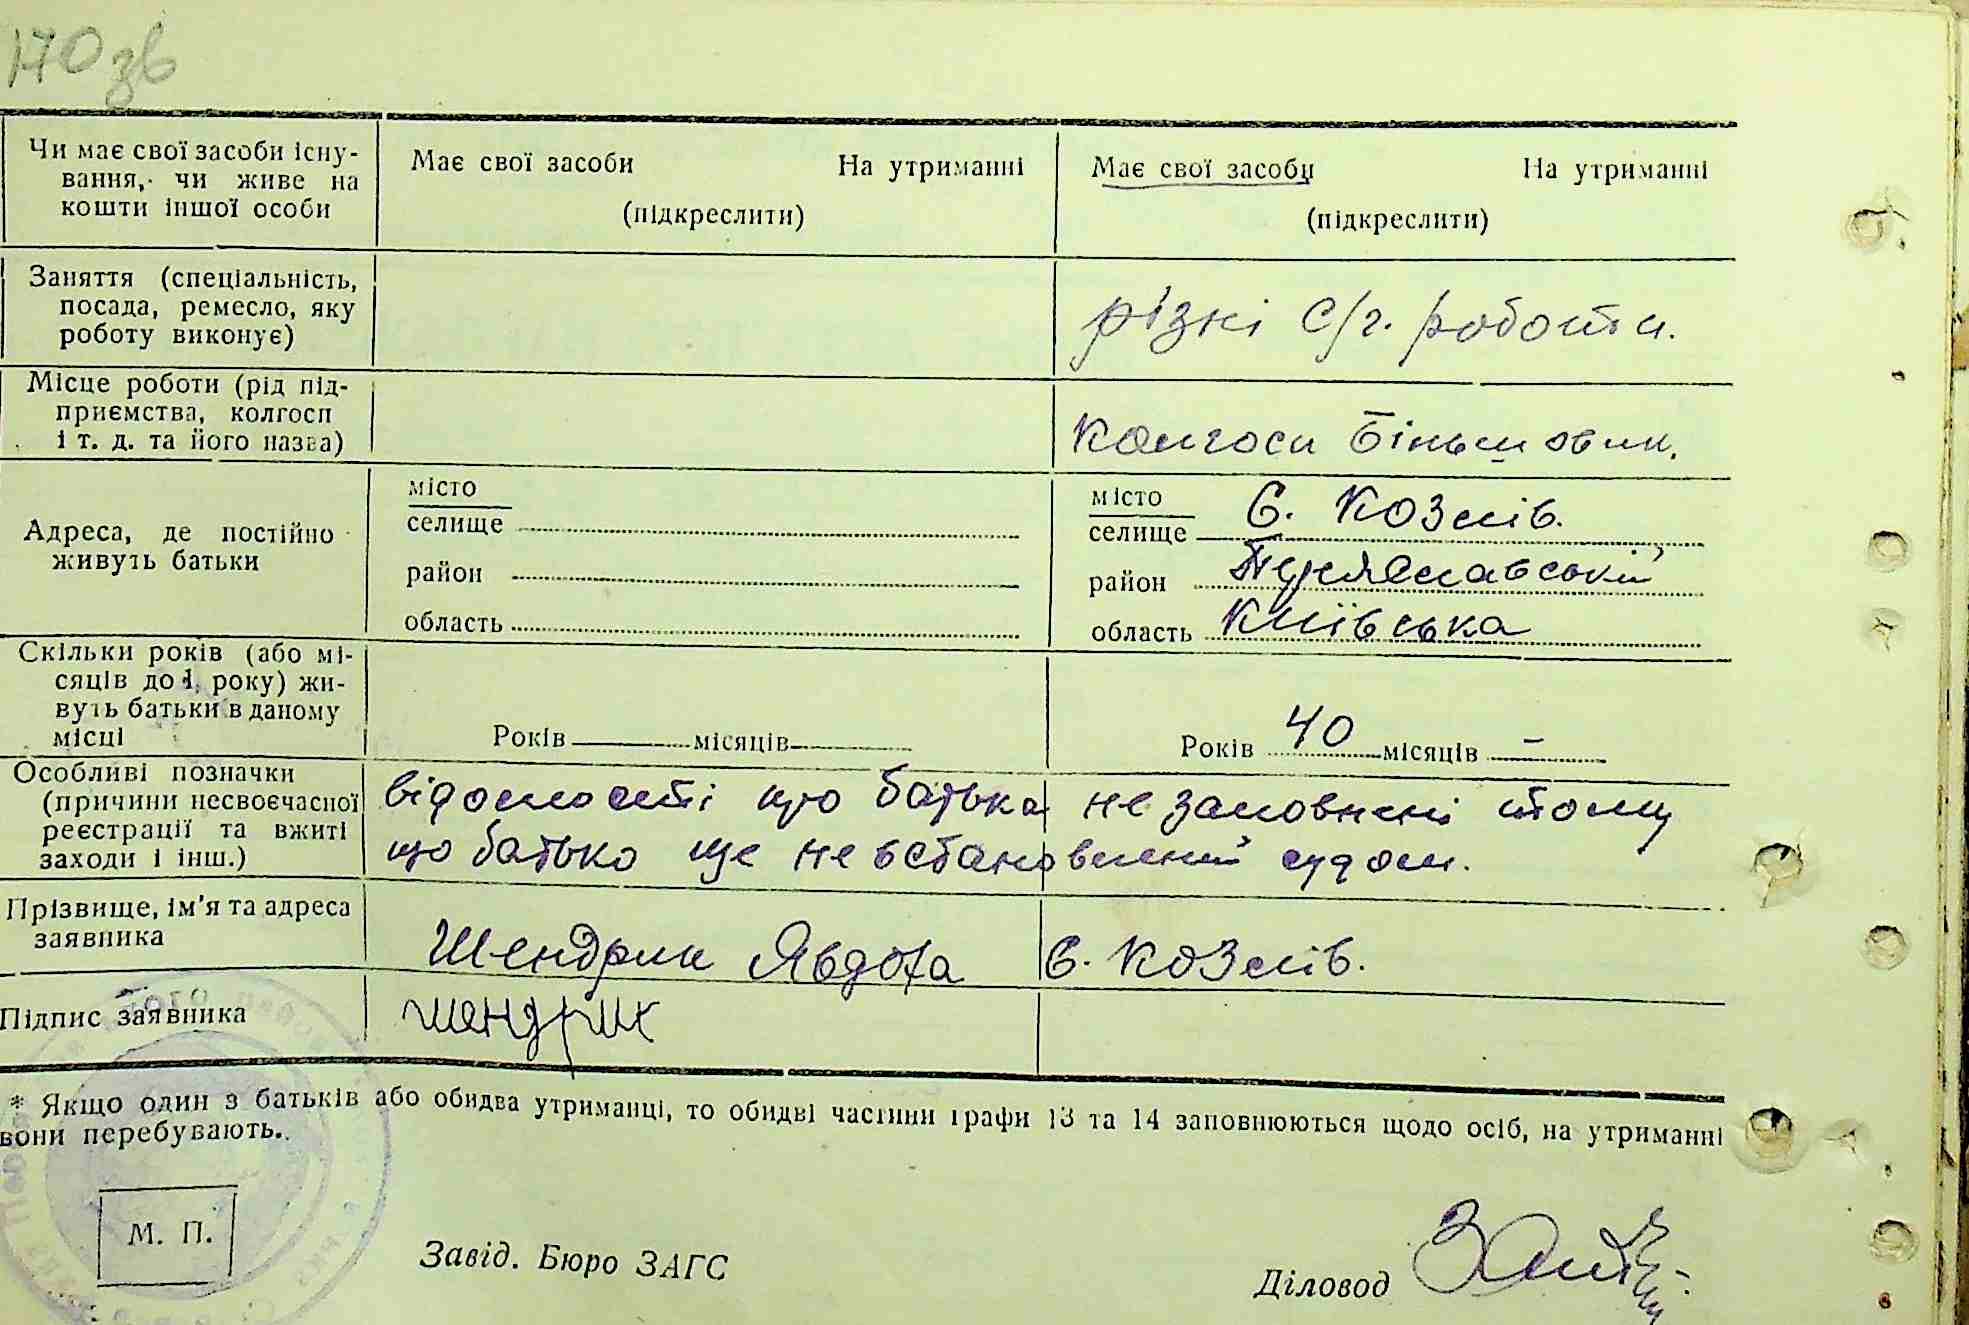 170 зв
Чи має свої засоби існу-
вання, чи живе на
кошти іншої особи
Має свої засоби На утриманні
(підкреслити)
Має свої засоби На утриманні
(підкреслити)
Заняття (спеціальність,
посада, ремесло, яку
роботу виконує)
різні с/г. роботи.
Місце роботи (рід під-
приємства, колгосп
і т. д. та його назва)
колгосп Більшовик.
Адреса, де постійно
живуть батьки
місто
селище
район
область
місто
селище С. Козлів.
район Переяславський
область Київська
Скільки років (або мі-
сяців до 1 року) жи-
вуть батьки в даному
місці
Років місяців
Років 40 місяців –
Особливі позначки
(причини несвоєчасної
реєстрації та вжиті
заходи і інш.)
відомості про батька не заповнені тому
що батько ще не встановлений судом.
Прізвище, ім'я та адреса
заявника
Шендрик Явдоха С. Козлів.
Підпис заявника
шендрик
* Якщо один з батьків або обидва утриманці, то обидві частини графи 13 та 14 заповнюються щодо осіб, на утриманні
вони перебувають.
М. П.
Завід. Бюро ЗАГС
Діловод